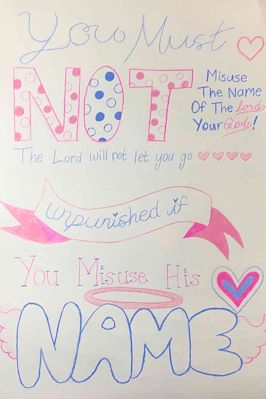 You Must
NOT
Misuse
The Name
Of The Lord
Your God!
The Lord will not let you go
unpunished if
You Misuse His
NAME